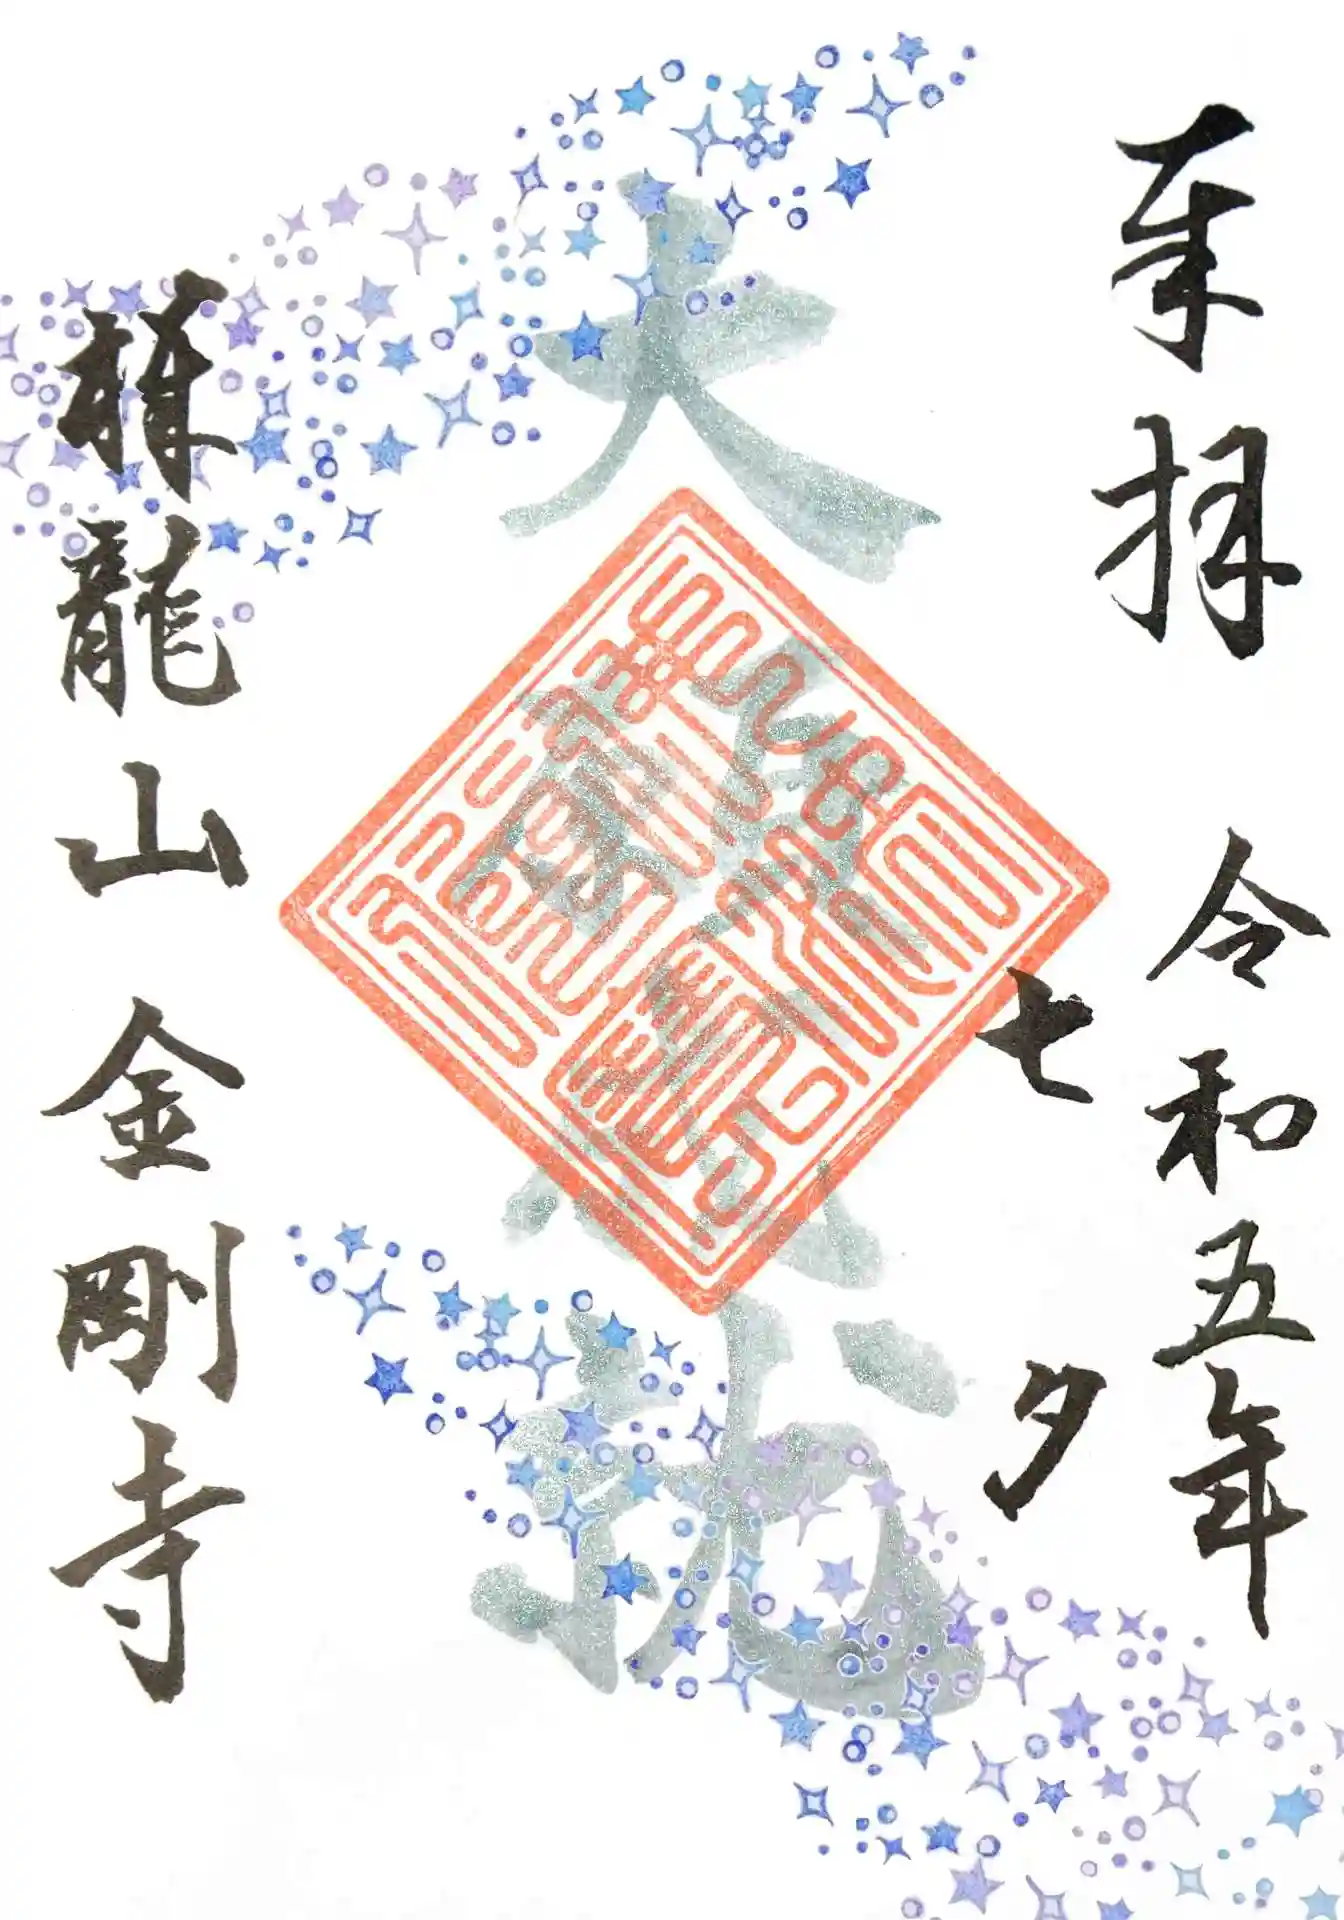 奉拝
令和五年
七夕
大願成就
龍山金剛寺